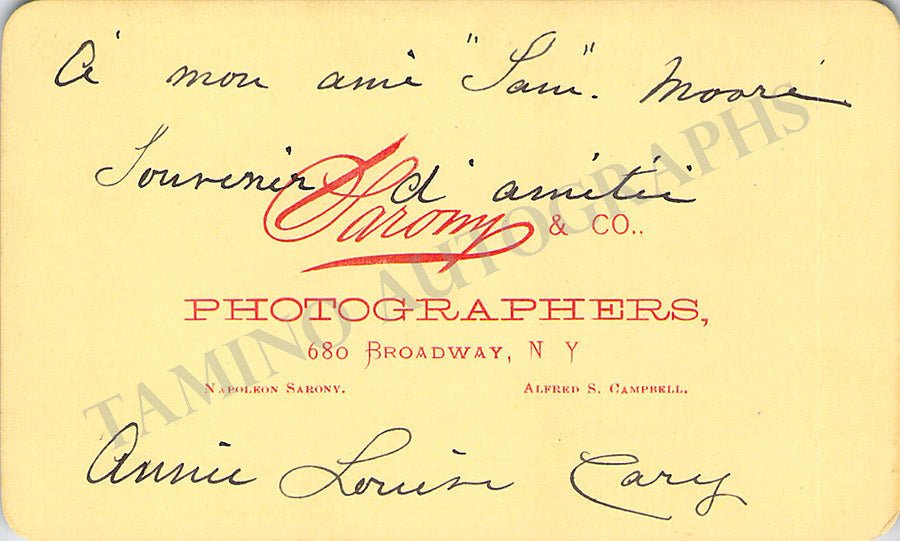 A' mon ami "Sam". Moore
Souvenir d' amitié
Sarony & CO..
PHOTOGRAPHERS,
680 BROADWAY, N Y
NAPOLEON SARONY. ALFRED S. CAMPBELL.
Annie Louise Cary
TAMINO AUTOGRAPHS